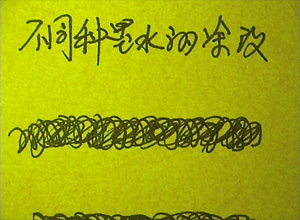 不同种墨水的涂改